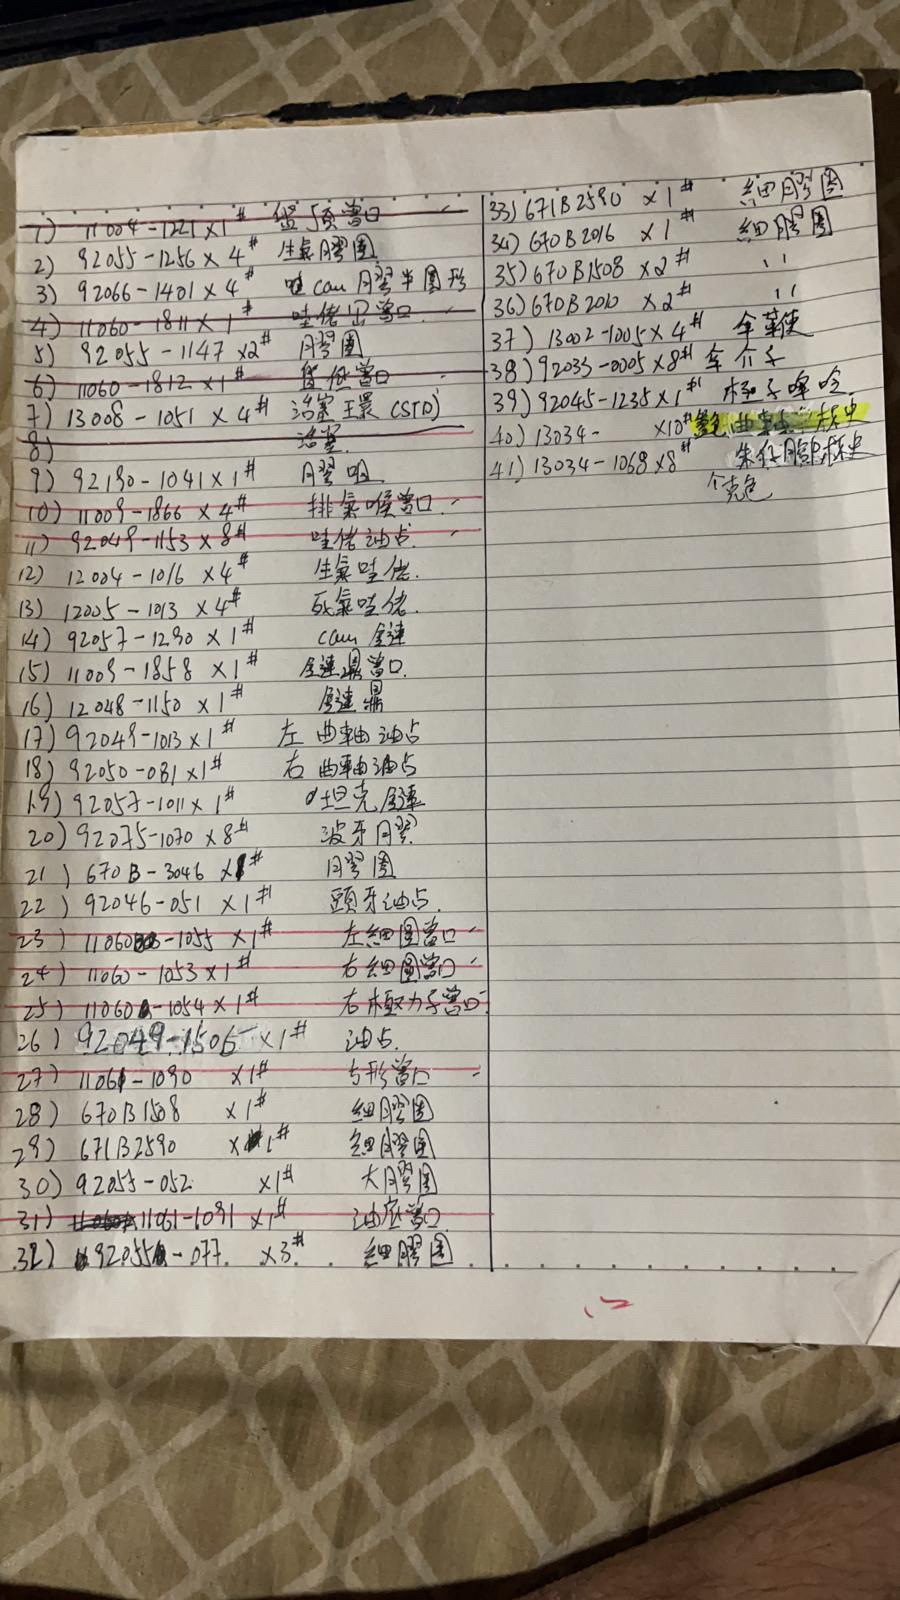 1) 11004-1221 x 1# 盤頂當口
2) 92055-1256 x 4# 生氣膠圈
3) 92066-1401 x 4# 哇cam膠半圓形
4) 11060-1811 x 1# 哇佬 當口
5) 92055-1147 x2# 膠圈
6) 11060-1812 x 1# 當口
7) 13008-1051 x 4# 活塞王環 (STD)
8) 活塞
9) 92190-1041 x 1# 膠咀
10) 11009-1866 x 4# 排氣喉當口
11) 92049-1153 x 8# 哇佬油占
12) 12004-1016 x 4# 生氣哇佬
13) 12005-1013 x 4# 死氣哇佬
14) 92057-1290 x 1# cam 鏈
15) 11009-1858 x 1# 鏈鼎當口
16) 12048-1150 x 1# 鏈鼎
17) 92049-1013 x 1# 左曲軸油占
18) 92050-081 x 1# 右曲軸油占
19) 92057-1011 x 1# 坦克鏈
20) 92075-1070 x 8# 波牙膠
21) 670B-3046 x 1# 膠圈
22) 92046-051 x 1# 頭牙油占
23) 11060-1055 x 1# 左細圓當口
24) 11060-1053 x 1# 右細圓當口
25) 11060-1054 x 1# 右極力子當口
26) 92049-1505 x 1# 油占
27) 11061-1090 x 1# 形當口
28) 670B1508 x 1# 細膠圈
29) 671B2590 x 1# 細膠圈
30) 92055-052 x 1# 大膠圈
31) 11061-1091 x 1# 油底當口
32) 92055-077 x 3# 細膠圈
33) 671B2590 x 1# 細膠圈
34) 670B2016 x 1# 細膠圈
35) 670B1508 x 2# 〃
36) 670B2010 x 2# 〃
37) 13002-1005 x 4#
38) 92033-0005 x 8# 介子
39) 92045-1235 x 1# 子啤呤
40) 13034- x10# 曲軸
41) 13034-1068 x 8#
克色